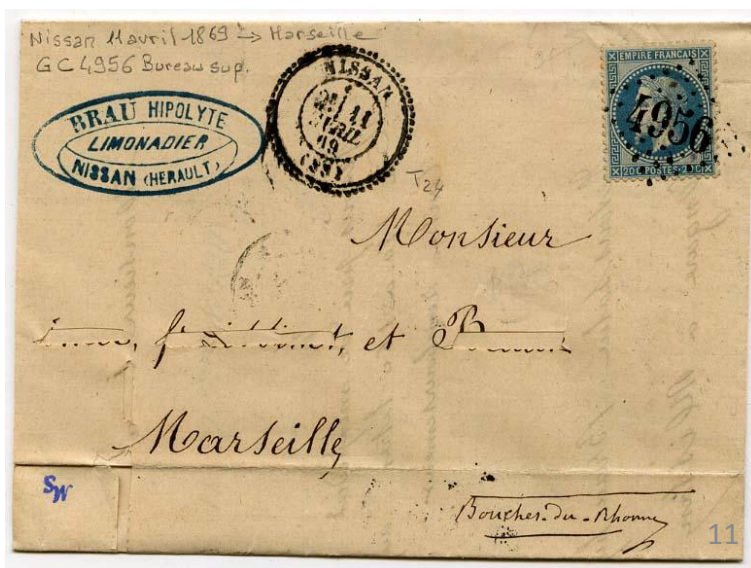 Nissan 11 avril 1869 -> Marseille
GC 4956 Bureau sup.
BRAU HIPOLYTE
LIMONADIER
NISSAN (HERAULT)
NISSAN
11
AVRIL
69
(33)
EMPIRE FRANCAIS
4956
20 C POSTES 20 C
T24
Monsieur
et
Marseille
SW
Bouches-du-Rhone
11